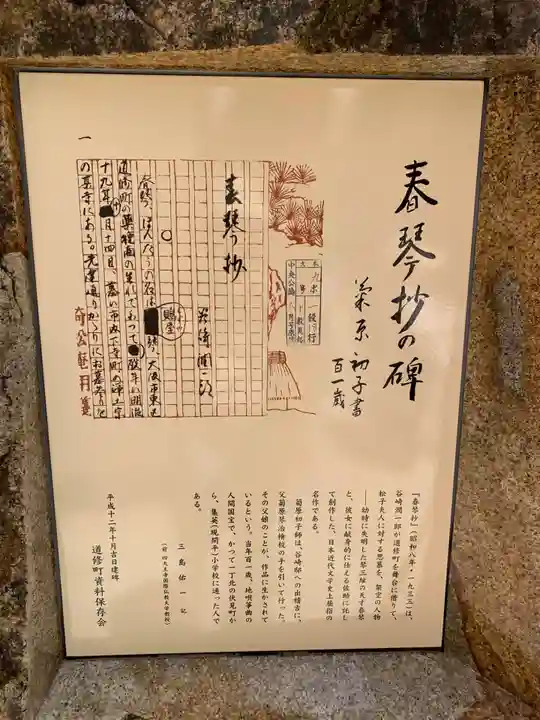 春琴抄の碑
菊原初子書
百一歳
一
春琴抄
谷崎潤一郎
○
春琴、ほんたうの名は
鵙屋琴、大阪市東区
道修町の薬種商の生れで
歿年は明治
十九年
月十四日、墓は市内下寺町の浄土宗
の某寺にある。先達通りかゝりにお墓まゐりを
中央公論
『春琴抄』(昭和八年・一九三三)は、
谷崎潤一郎が道修町を舞台に借りて、
松子夫人に対する思慕を、架空の人物
――幼時に失明した琴三絃の天才春琴
と、彼女に献身的に仕える佐助に託し
て創作した、日本近代文学史上屈指の
名作である。
菊原初子師は、谷崎邸への出稽古に、
父菊原琴治検校の手を引いて行った。
その父娘のことが、作品に生かされて
いるという。当年百一歳、地唄箏曲の
人間国宝で、かつて一丁北の伏見町か
ら、集英(現開平)小学校に通った人で
ある。
三島佑一 記
(前 四天王寺国際仏教大学教授)
平成十二年十月吉日建碑
道修町資料保存会